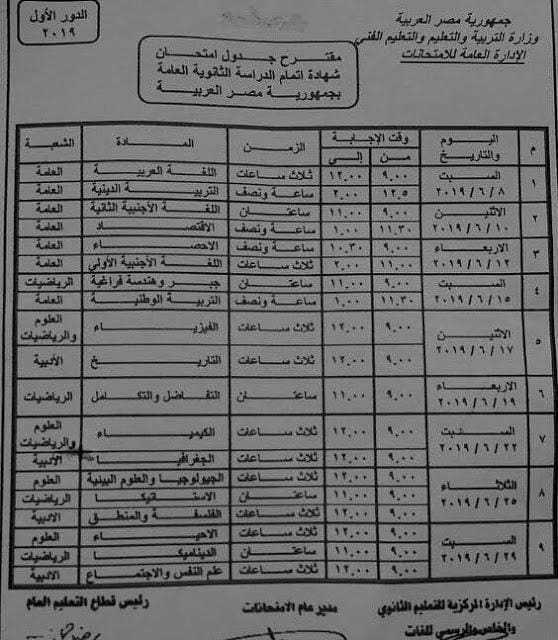 جمهورية مصر العربية
وزارة التربية والتعليم والتعليم الفني
الإدارة العامة للامتحانات
الدور الأول
٢٠١٩
مقترح جدول امتحان
شهادة اتمام الدراسة الثانوية العامة
بجمهورية مصر العربية
م اليوم والتاريخ وقت الإجابة من إلى الزمن المادة الشعبة
١ السبت ٢٠١٩/٦/٨ ٩.٠٠ ١٢.٠٠ ثلاث ساعات اللغة العربية العامة
١٢.٥ ٢.٠٠ ساعة ونصف التربية الدينية العامة
٢ الاثنين ٢٠١٩/٦/١٠ ٩.٠٠ ١١.٠٠ ساعتان اللغة الأجنبية الثانية العامة
١١.٣٠ ١.٠٠ ساعة ونصف الاقتصاد العامة
٣ الاربعاء ٢٠١٩/٦/١٢ ٩.٠٠ ١٠.٣٠ ساعة ونصف الاحصاء العامة
١١.٠٠ ٢.٠٠ ثلاث ساعات اللغة الأجنبية الأولى العامة
٤ السبت ٢٠١٩/٦/١٥ ٩.٠٠ ١١.٠٠ ساعتان جبر وهندسة فراغية الرياضيات
١١.٣٠ ١.٠٠ ساعة ونصف التربية الوطنية العامة
٥ الاثنين ٢٠١٩/٦/١٧ ٩.٠٠ ١٢.٠٠ ثلاث ساعات الفيزياء العلوم والرياضيات
٩.٠٠ ١٢.٠٠ ثلاث ساعات التاريخ الأدبية
٦ الاربعاء ٢٠١٩/٦/١٩ ٩.٠٠ ١١.٠٠ ساعتان التفاضل والتكامل الرياضيات
٧ السبت ٢٠١٩/٦/٢٢ ٩.٠٠ ١٢.٠٠ ثلاث ساعات الكيمياء العلوم والرياضيات
٩.٠٠ ١٢.٠٠ ثلاث ساعات الجغرافيا الأدبية
٨ الثلاثاء ٢٠١٩/٦/٢٥ ٩.٠٠ ١٢.٠٠ ثلاث ساعات الجيولوجيا والعلوم البيئية العلوم
٩.٠٠ ١١.٠٠ ساعتان الاستاتيكا الرياضيات
٩.٠٠ ١٢.٠٠ ثلاث ساعات الفلسفة والمنطق الادبية
٩ السبت ٢٠١٩/٦/٢٩ ٩.٠٠ ١٢.٠٠ ثلاث ساعات الاحياء العلوم
٩.٠٠ ١١.٠٠ ساعتان الديناميكا الرياضيات
٩.٠٠ ١٢.٠٠ ثلاث ساعات علم النفس والاجتماع الادبية
رئيس الإدارة المركزية للتعليم الثانوي مدير عام الامتحانات رئيس قطاع التعليم العام
والخاص والرسمي للغات